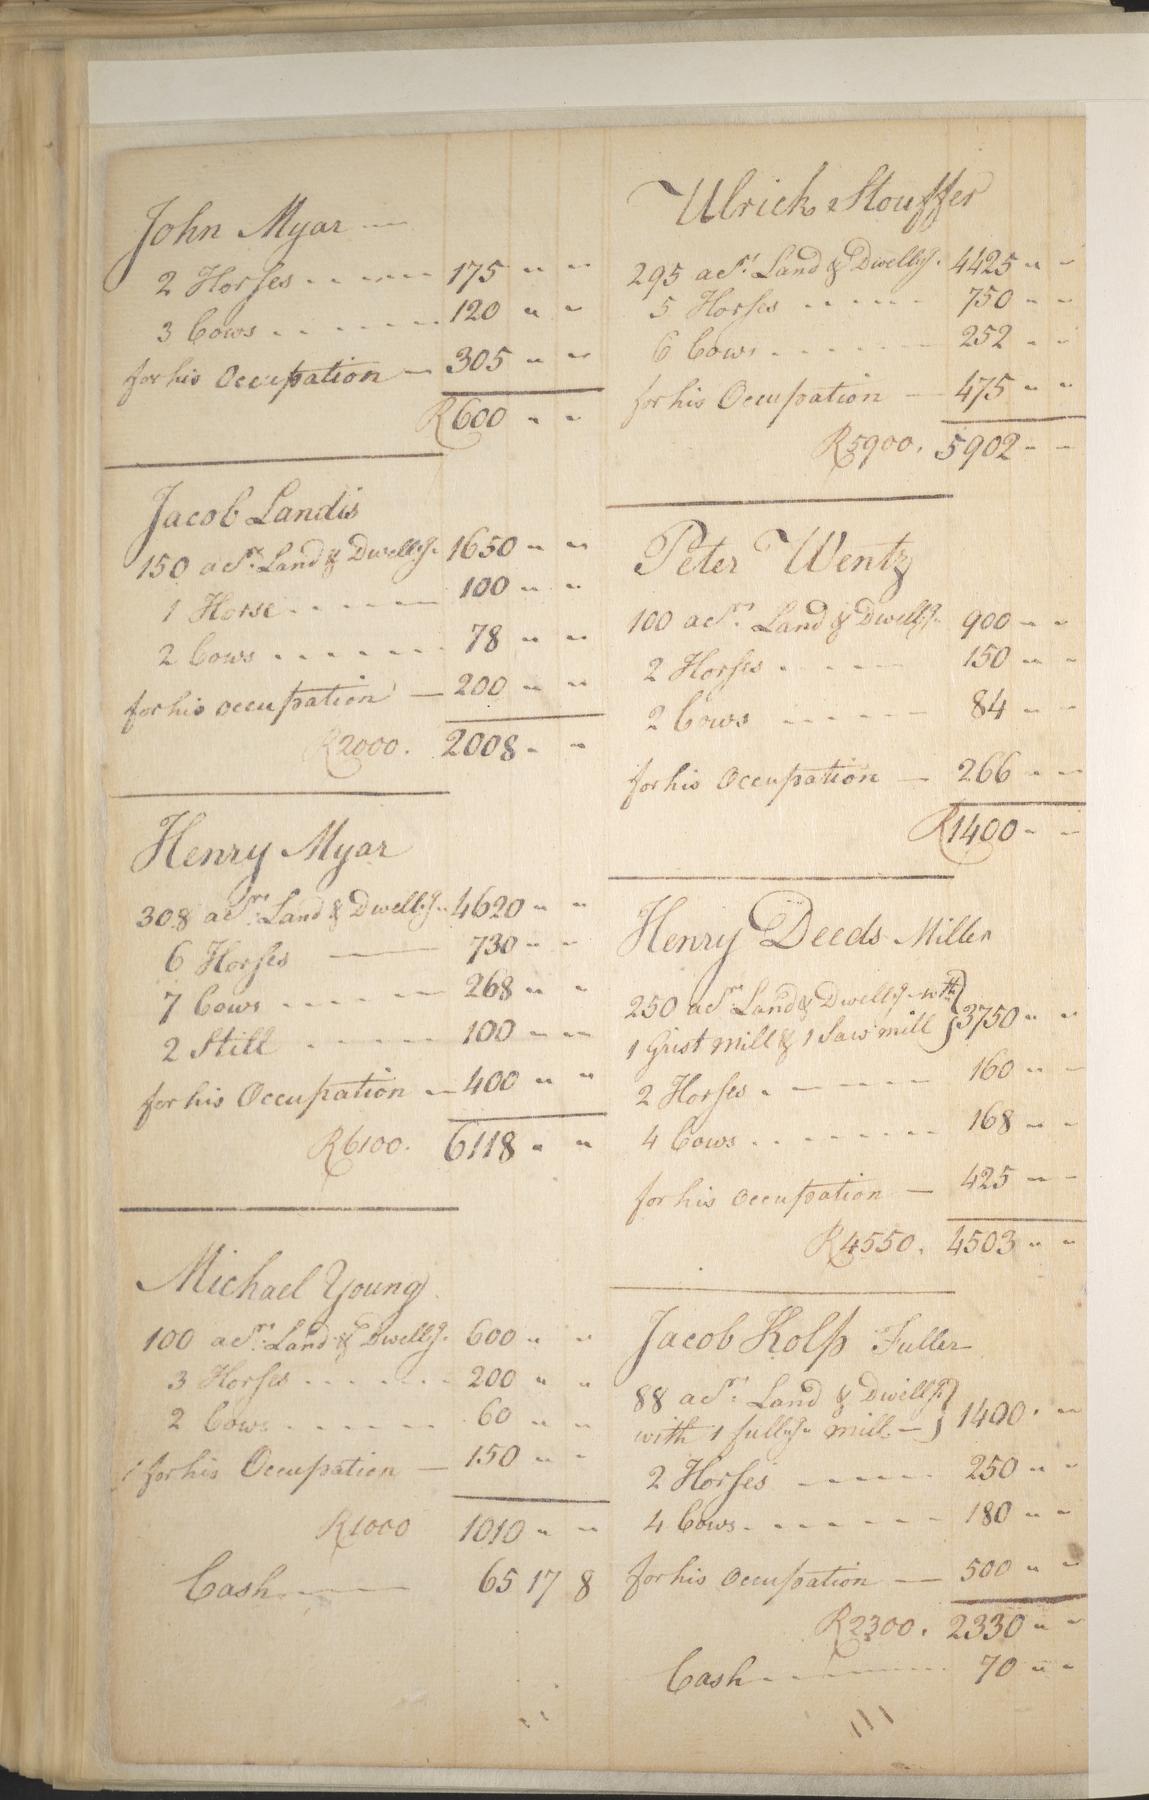 John Myar —
2 Horses - - - - - - 175 " "
3 Cows - - - - - - 120 " "
for his Occupation — 305 " "
R600 " "
Jacob Landis
150 acrs. Land & Dwellg. 1650 " "
1 Horse - - - - - 100 " "
2 Cows - - - - - - - 78 " "
for his occupation — 200 " "
R2000. 2008 " "
Henry Myar
308 acrs. Land & Dwellg. 4620 " "
6 Horses — 730 " "
7 Cows - - - - - - 268 " "
2 Still - - - - - 100 " "
for his Occupation — 400 " "
R6100. 6118 " "
Michael Young
100 acrs. Land & Dwellg. 600 " "
3 Horses - - - - - - 200 " "
2 Cows - - - - - - 60 " "
for his Occupation — 150 " "
R1000 1010 " "
Cash — 65 17 8
Ulrich Stouffer
295 acrs. Land & Dwellg. 4425 " "
5 Horses - - - - - - 750 " "
6 Cows - - - - - - 252 " "
for his Occupation — 475 " "
R5900. 5902 " "
Peter Wentz
100 acrs. Land & Dwellg. 900 " "
2 Horses - - - - - 150 " "
2 Cows - - - - - 84 " "
for his Occupation — 266 " "
R1400 " "
Henry Deeds Miller
250 acrs. Land & Dwellg. wth }
1 Grist mill & 1 Saw mill } 3750 " "
2 Horses - - - - - - 160 " "
4 Cows - - - - - - - 168 " "
for his occupation — 425 " "
R4550. 4503 " "
Jacob Kolp Fuller
88 acrs. Land & Dwellg. }
with 1 fullg. mill — } 1400 " "
2 Horses - - - - - 250 " "
4 Cows - - - - - - - 180 " "
for his occupation — 500 " "
R2300. 2330 " "
Cash - - - - 70 " "